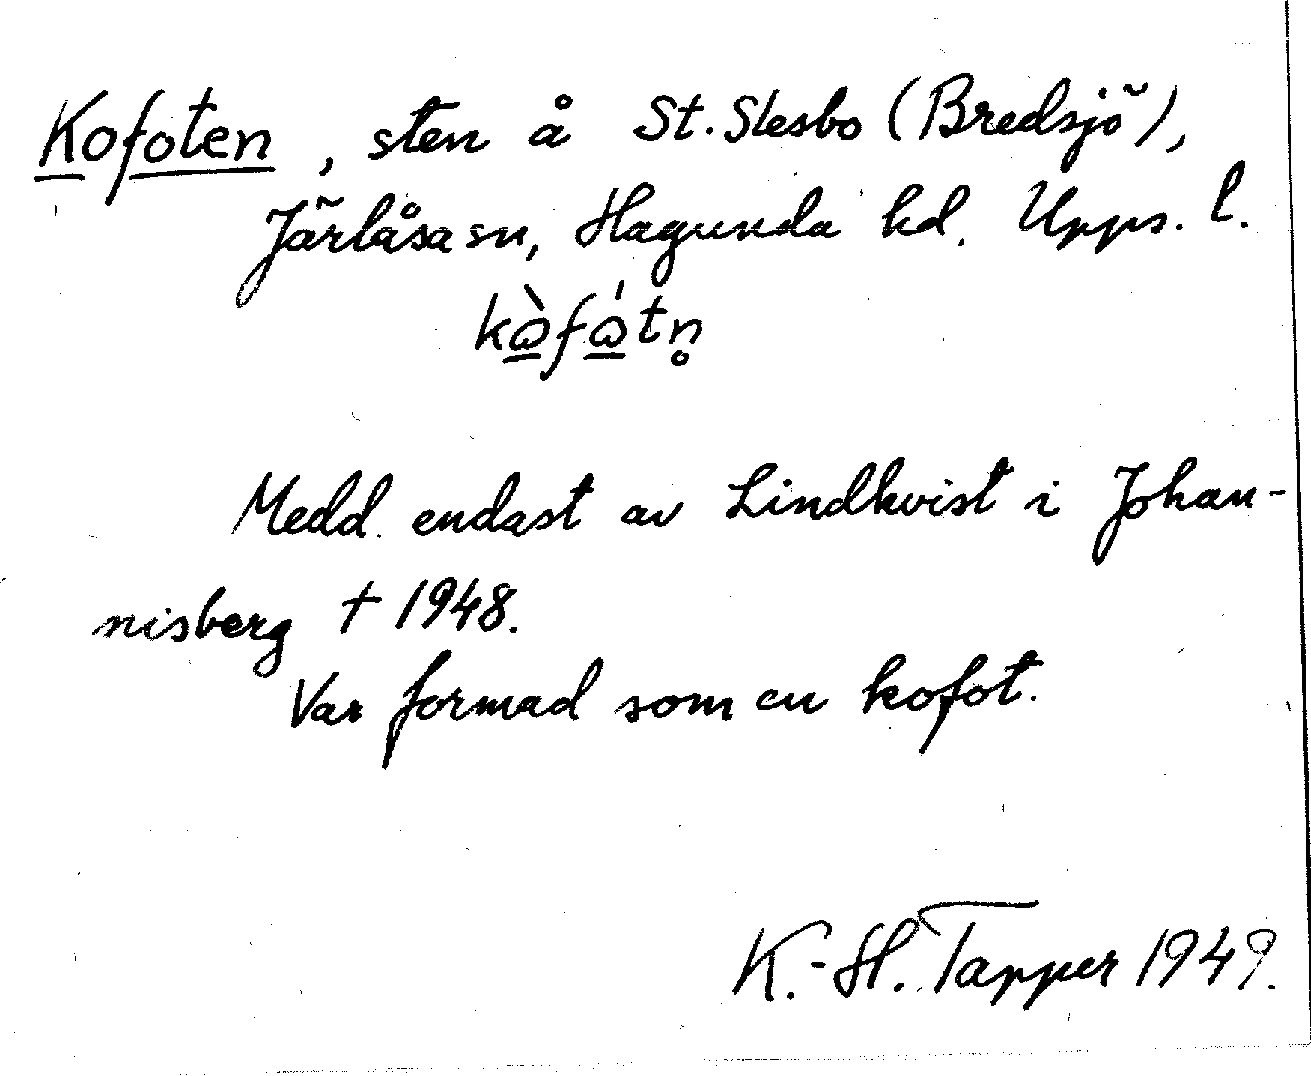 Kofoten, sten å St. Slesbo (Bredsjö),
Järlåsa sn, Hagunda hd. Upps. l.
kὼ̲fώ̲tn̥
Medd. endast av Lindkvist i Johan-
nisberg † 1948.
Var formad som en kofot.
K.-H. Tapper 1949.